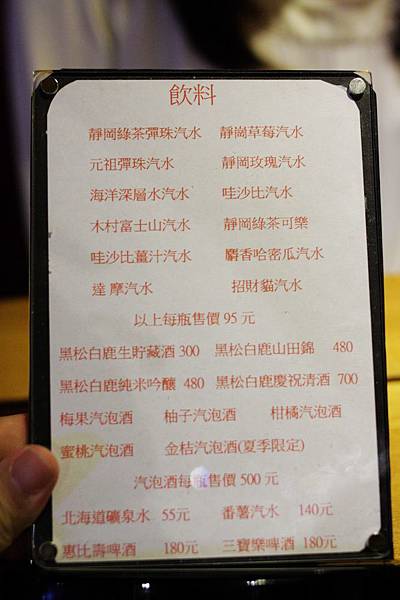 飲料
靜岡綠茶彈珠汽水 靜崗草莓汽水
元祖彈珠汽水 靜岡玫瑰汽水
海洋深層水汽水 哇沙比汽水
木村富士山汽水 靜岡綠茶可樂
哇沙比薑汁汽水 麝香哈密瓜汽水
達 摩汽水 招財貓汽水
以上每瓶售價 95 元
黑松白鹿生貯藏酒 300 黑松白鹿山田錦 480
黑松白鹿純米吟釀 480 黑松白鹿慶祝清酒 700
梅果汽泡酒 柚子汽泡酒 柑橘汽泡酒
蜜桃汽泡酒 金桔汽泡酒(夏季限定)
汽泡酒每瓶售價 500 元
北海道礦泉水 55元 番薯汽水 140元
惠比壽啤酒 180元 三寶樂啤酒 180元